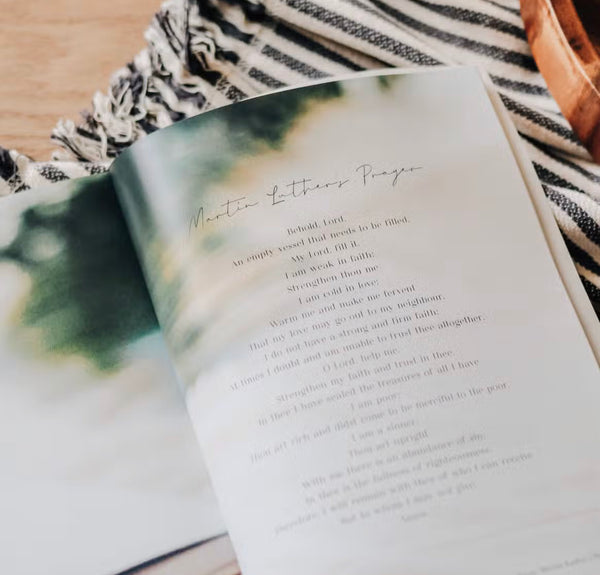 Martin Luthers Prayer
Behold, Lord,
An empty vessel that needs to be filled.
My Lord, fill it.
I am weak in faith;
Strengthen thou me
I am cold in love;
Warm me and make me fervent
That my love may go out to my neighbour.
I do not have a strong and firm faith;
At times I doubt and am unable to trust thee altogether.
O Lord, help me.
Strengthen my faith and trust in thee
In thee I have sealed the treasures of all I have
I am poor;
Thou art rich and didst come to be merciful to the poor.
I am a sinner;
Thou art upright
With me there is an abundance of sin;
In thee is the fullness of righteousness.
Therefore I will remain with thee of who I can receive
But to whom I may not give.